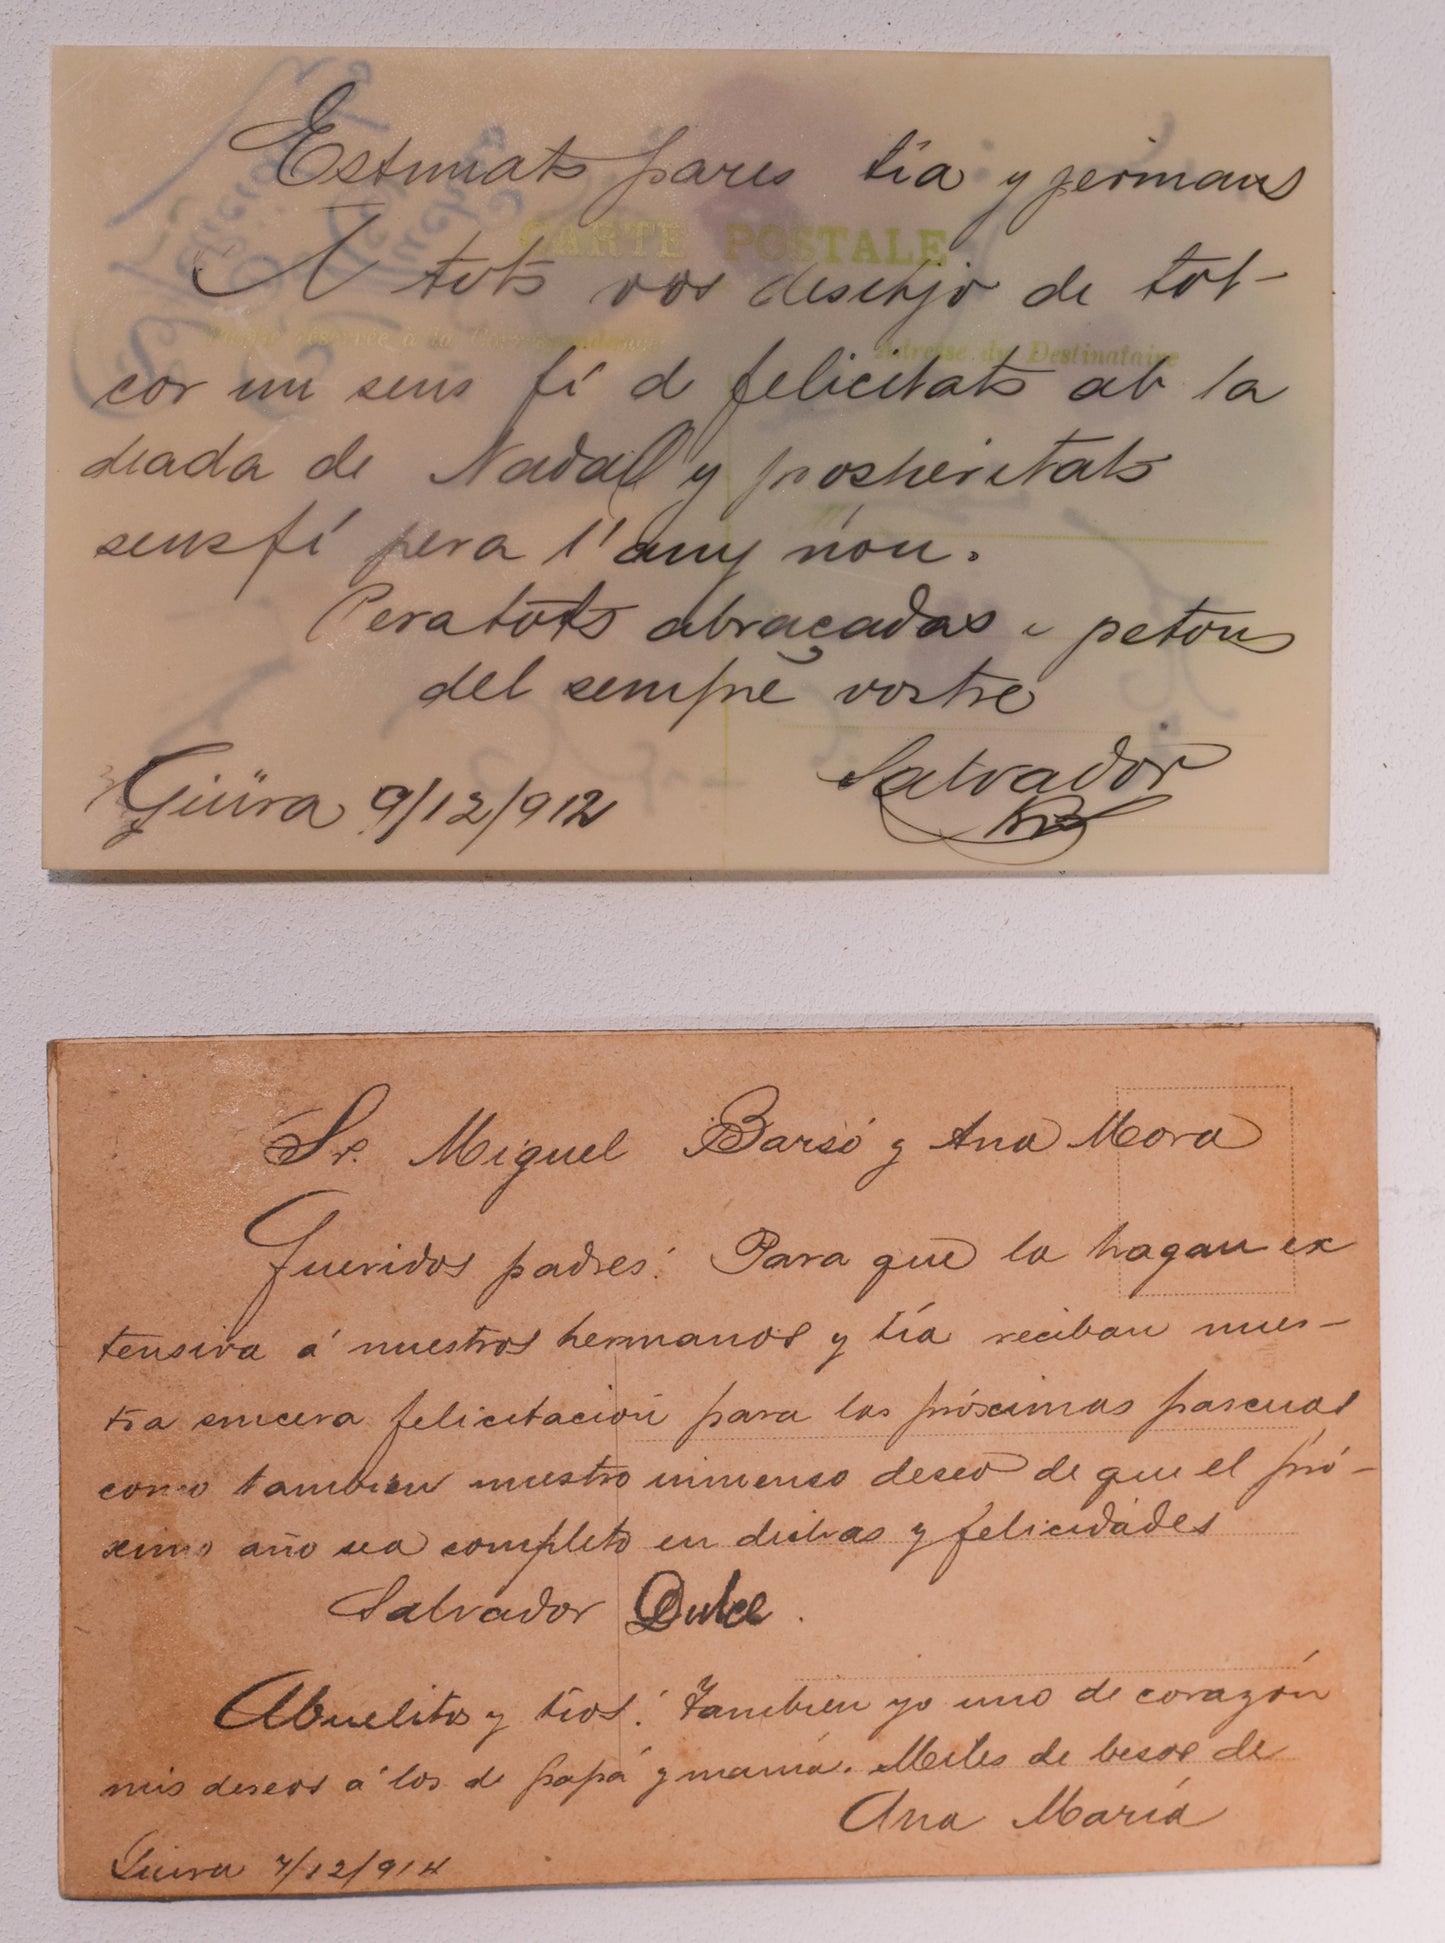 Estimats pares tía y germans
A tots vos desitjo de tot-
cor un sens fí d felicitats ab la
diada de Nadal y prosperitats
sensfí pera l'any nou.
Peratots abraçadas i petons
del sempre vostre
Salvador
Güira 9/12/912
CARTE POSTALE
Partie réservée à la Correspondance
Adresse du Destinataire
Sr. Miguel Barsó y Ana Mora
Queridos padres: Para que la hagan ex
tensiva á nuestros hermanos y tía reciban nues-
tra sincera felicitación para las próximas pascuas
como tambien nuestro inmenso deseo de que el pró-
ximo año sea completo en dichas y felicidades
Salvador Dulce.
Abuelitos y tíos: Tambien yo uno de corazón
mis deseos á los de papá y mamá. Miles de besos de
Ana María
Güira 7/12/914